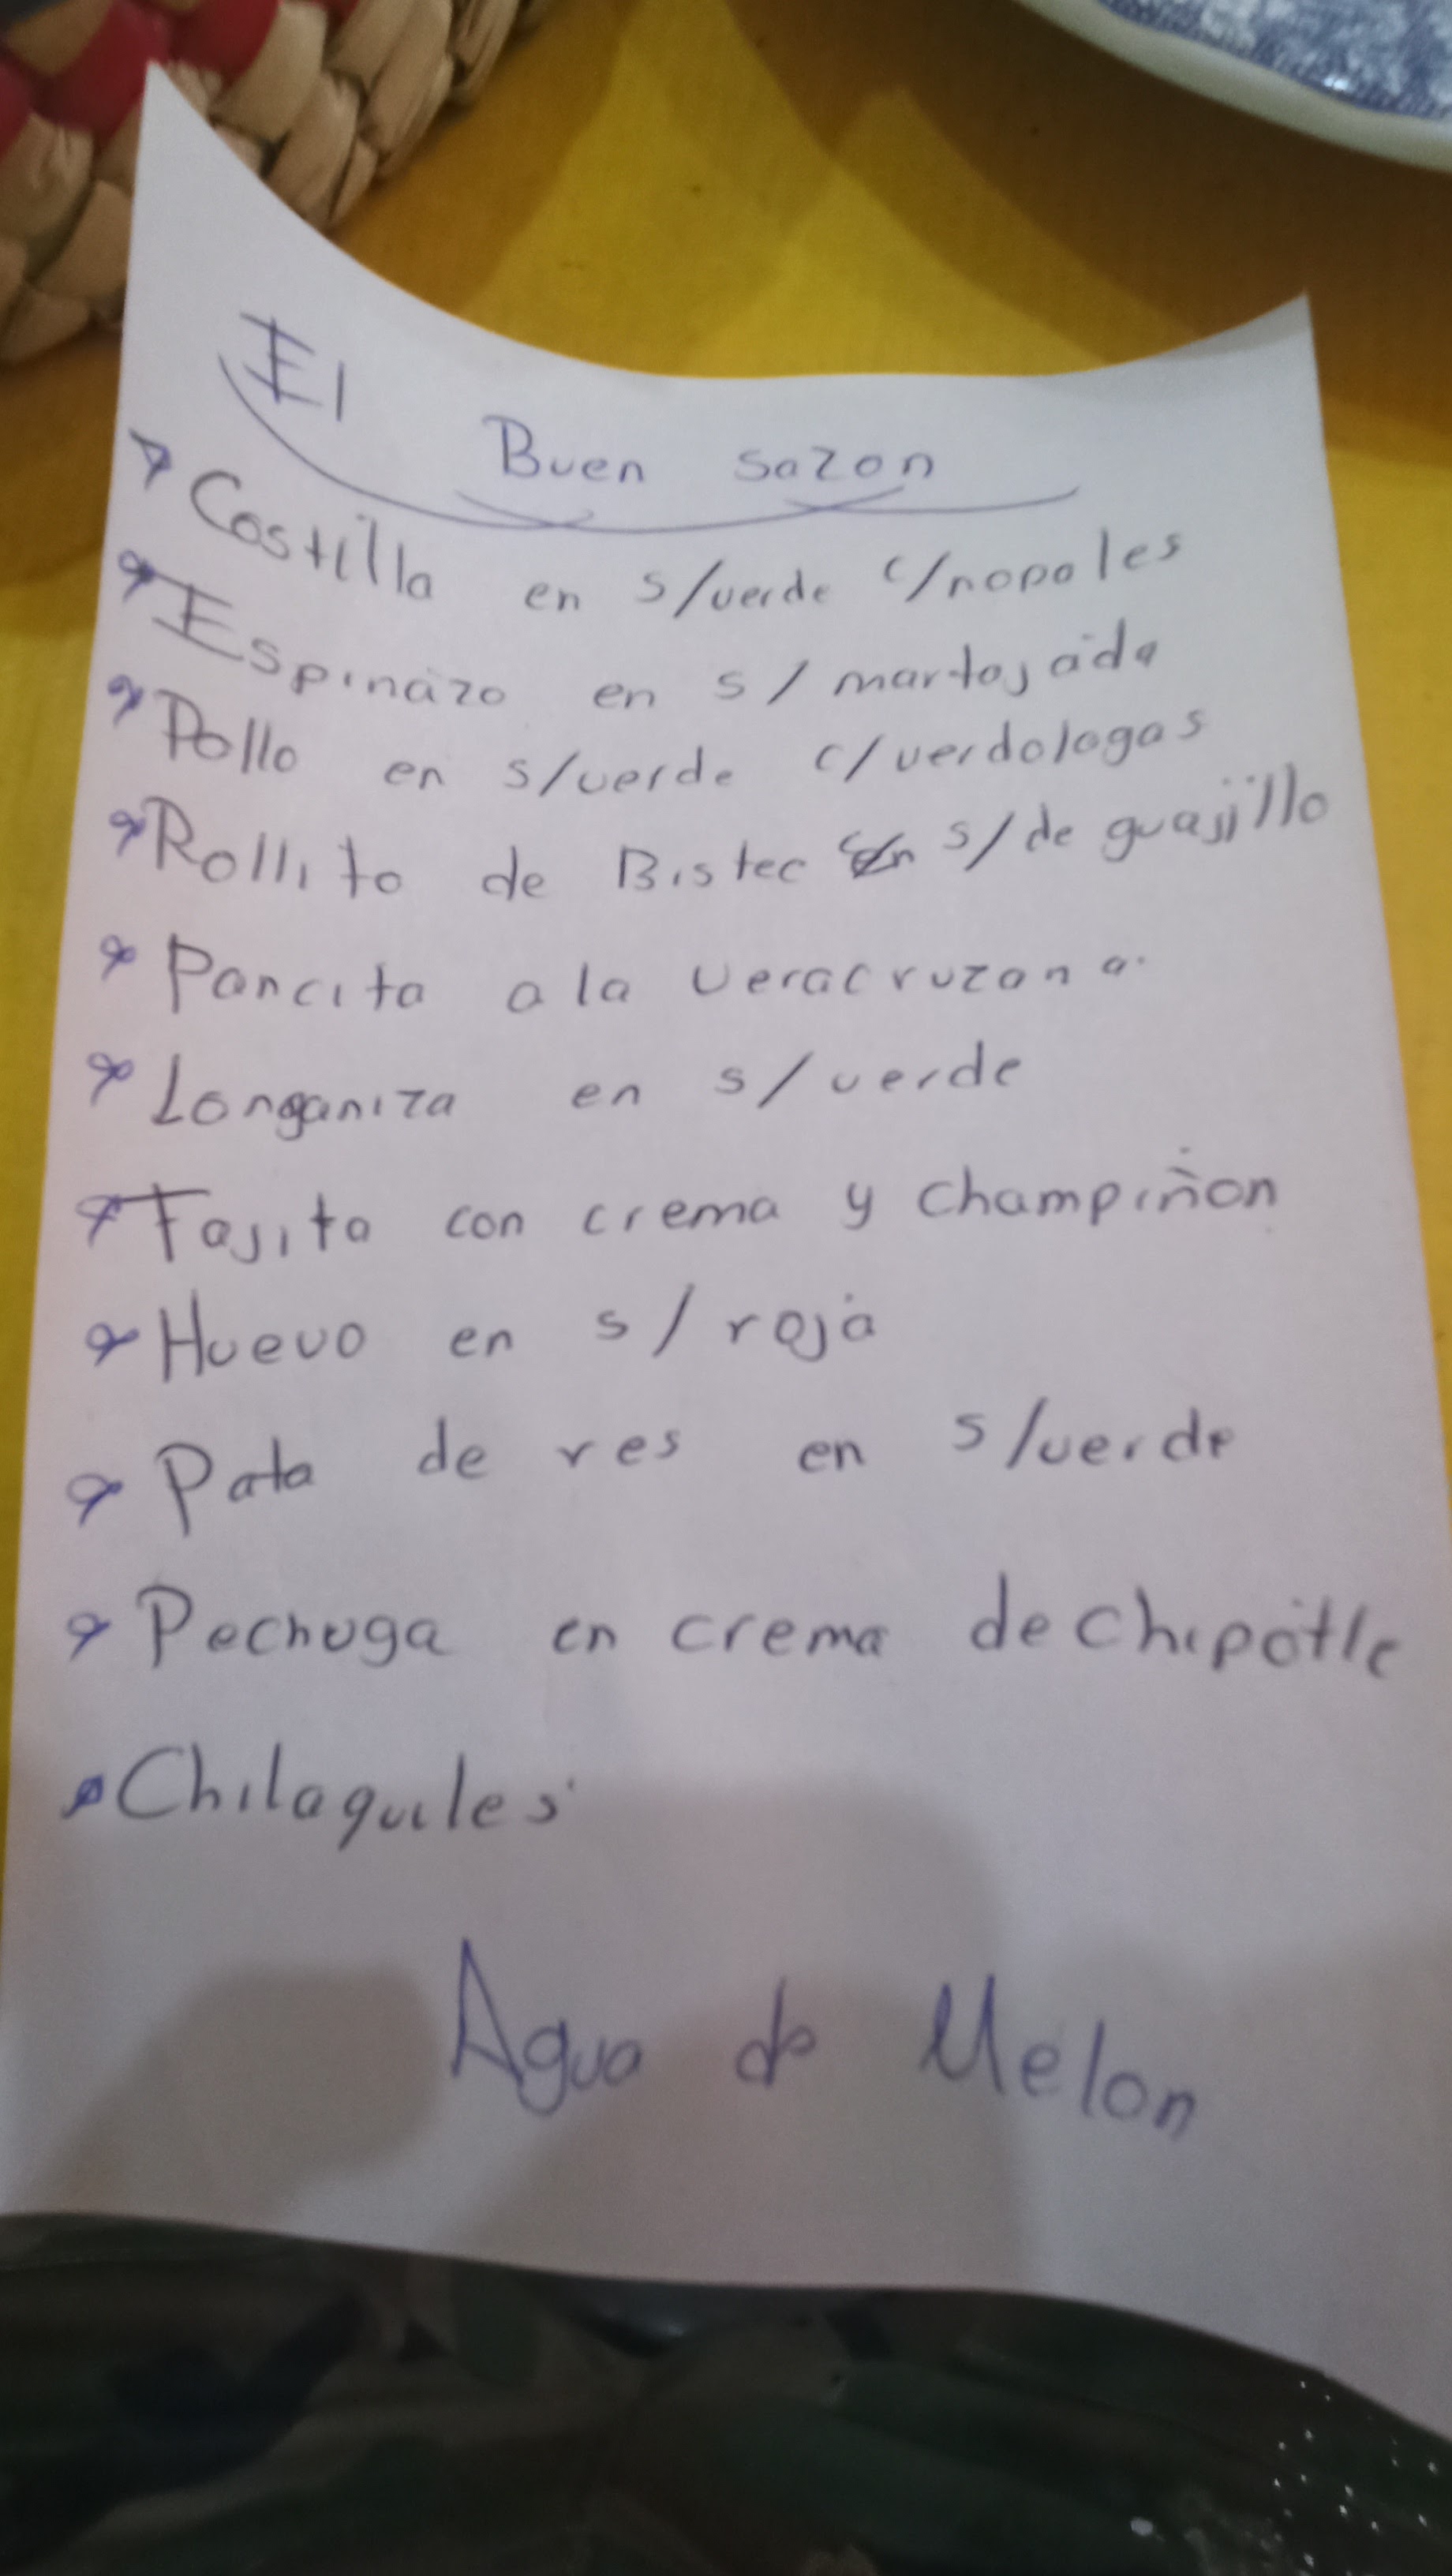 El Buen sazon
Costilla en s/verde c/nopales
Espinazo en s/ martajada
Pollo en s/verde c/verdologas
Rollito de Bistec en s/de guajillo
Pancita a la veracruzana.
Longaniza en s/verde
Fajita con crema y champiñon
Huevo en s/roja
Pata de res en s/verde
Pechuga en crema de chipotle
Chilaquiles
Agua de Melon